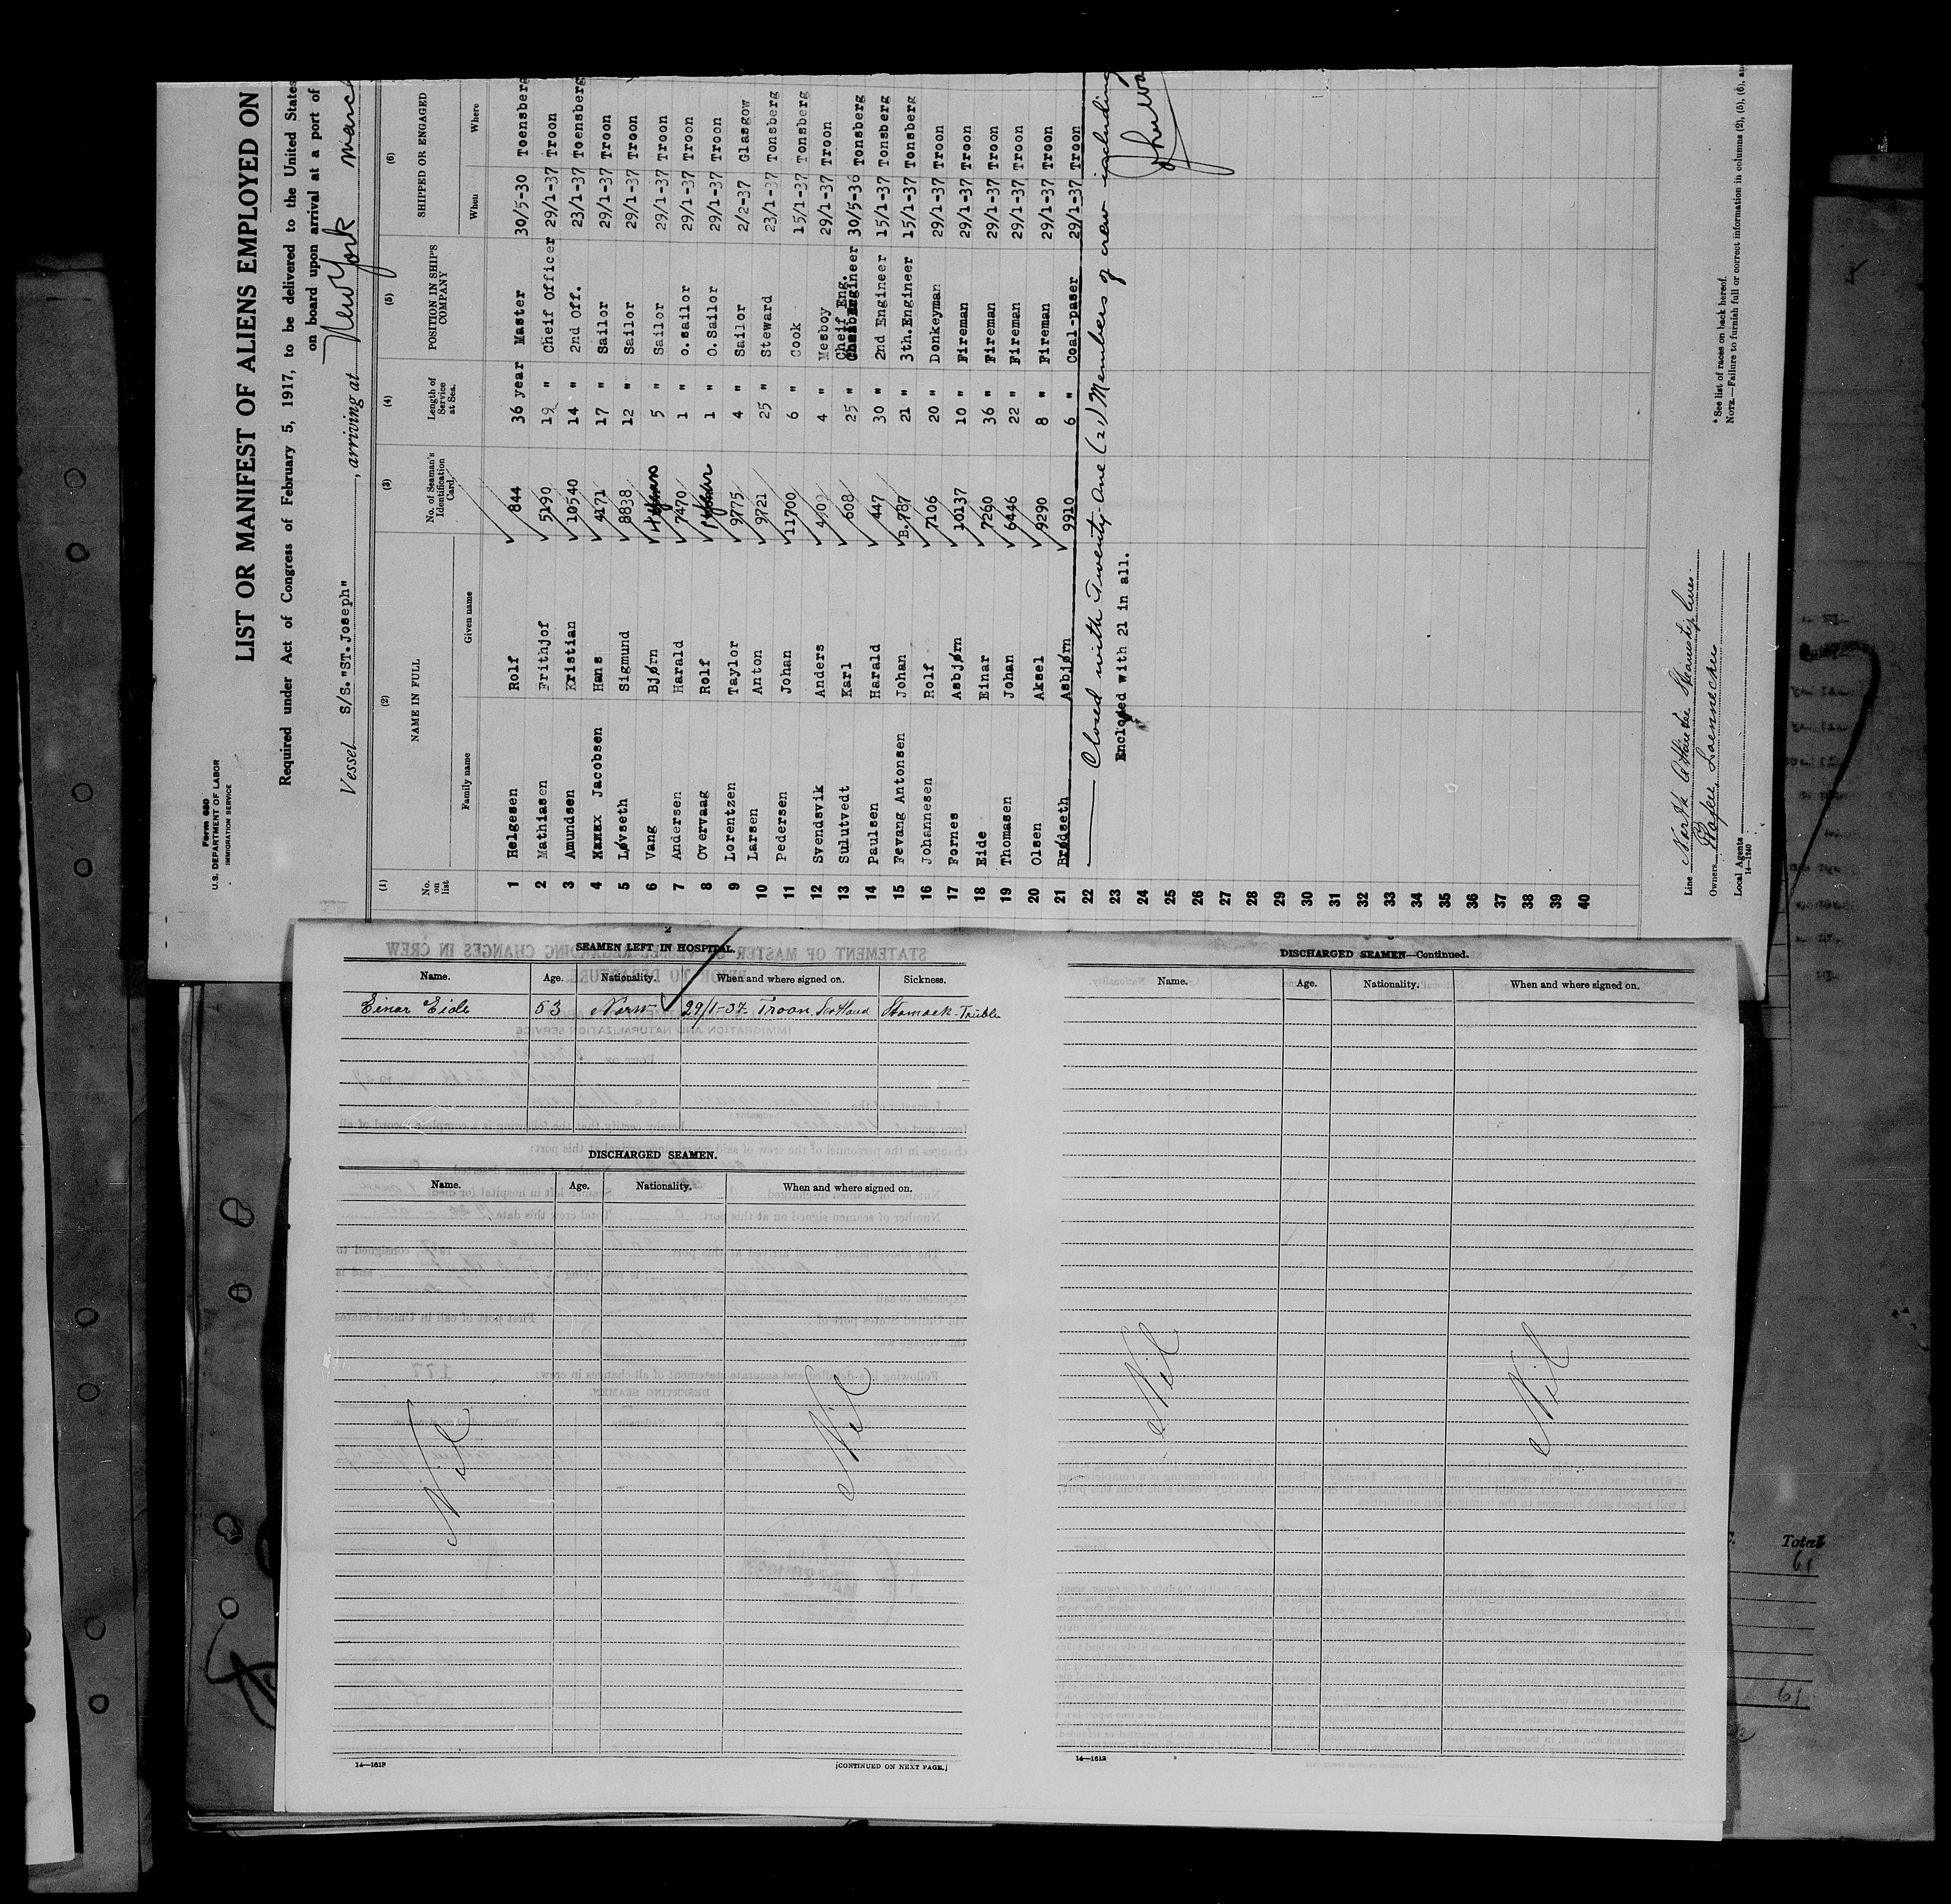 Form 680
U.S. DEPARTMENT OF LABOR
IMMIGRATION SERVICE
LIST OR MANIFEST OF ALIENS EMPLOYED ON
Required under Act of Congress of February 5, 1917, to be delivered to the United States
on board upon arrival at a port of
Vessel S/S. "ST. Joseph", arriving at New York
(1) (2) (3) (4) (5) (6)
No. on list NAME IN FULL No. of Seaman's Identification Card. Length of Service at Sea. POSITION IN SHIP'S COMPANY SHIPPED OR ENGAGED
Family name Given name When Where
1 Helgesen Rolf 844 36 year Master 30/5-30 Toensberg
2 Mathiasen Frithjof 5190 19 " Cheif Officer 29/1-37 Troon
3 Amundsen Kristian 10540 14 " 2nd Off. 23/1-37 Toensberg
4 Jacobsen Hans 4171 17 " Sailor 29/1-37 Troon
5 Løvseth Sigmund 8838 12 " Sailor 29/1-37 Troon
6 Vang Bjørn 5 " Sailor 29/1-37 Troon
7 Andersen Harald 7470 1 " O.sailor 29/1-37 Troon
8 Overvaag Rolf 1 " O.Sailor 29/1-37 Troon
9 Lorentzen Taylor 9775 4 " Sailor 2/2-37 Glasgow
10 Larsen Anton 9721 25 " Steward 23/1-37 Tonsberg
11 Pedersen Johan 11700 6 " Cook 15/1-37 Tonsberg
12 Svendsvik Anders 4 " Mesboy 29/1-37 Troon
13 Sulutvedt Karl 608 25 " Cheif Eng. 30/5-36 Tonsberg
14 Paulsen Harald 447 30 " 2nd Engineer 15/1-37 Tonsberg
15 Fevang Antonsen Johan B.787 21 " 3th.Engineer 15/1-37 Tonsberg
16 Johannesen Rolf 7106 20 " Donkeyman 29/1-37 Troon
17 Fornes Asbjørn 10137 10 " Fireman 29/1-37 Troon
18 Eide Einar 7260 36 " Fireman 29/1-37 Troon
19 Thomasen Johan 6446 22 " Fireman 29/1-37 Troon
20 Olsen Aksel 9290 8 " Fireman 29/1-37 Troon
21 Brødseth Asbjørn 9910 6 " Coal-paser 29/1-37 Troon
22 Closed with Twenty-One (21) Members of crew including
23 Enclosed with 21 in all.
24
25
26
27
28
29
30
31
32
33
34
35
36
37
38
39
40
Line
Owners
Local Agents
14—1240
* See list of races on back hereof.
NOTE.—Failure to furnish full or correct information in columns (2), (5), (6),
SEAMEN LEFT IN HOSPITAL.
Name. Age. Nationality. When and where signed on. Sickness.
Einar Eide 53 Norw 29/1-37 Troon, Scotland Stomack-Truble
DISCHARGED SEAMEN.
Name. Age. Nationality. When and where signed on.
Nil Nil
14—1613
[CONTINUED ON NEXT PAGE.]
DISCHARGED SEAMEN—Continued.
Name. Age. Nationality. When and where signed on.
Nil Nil
14—1613
Total
61
61